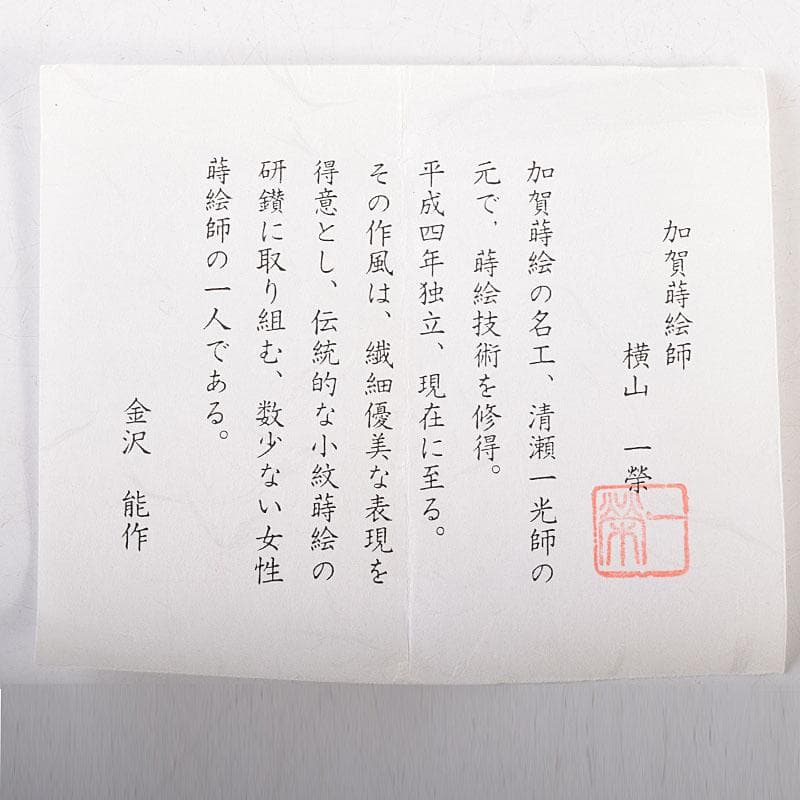 加賀蒔絵師
横山 一榮
一榮
加賀蒔絵の名工、清瀬一光師の
元で、蒔絵技術を修得。
平成四年独立、現在に至る。
その作風は、繊細優美な表現を
得意とし、伝統的な小紋蒔絵の
研鑚に取り組む、数少ない女性
蒔絵師の一人である。
金沢 能作